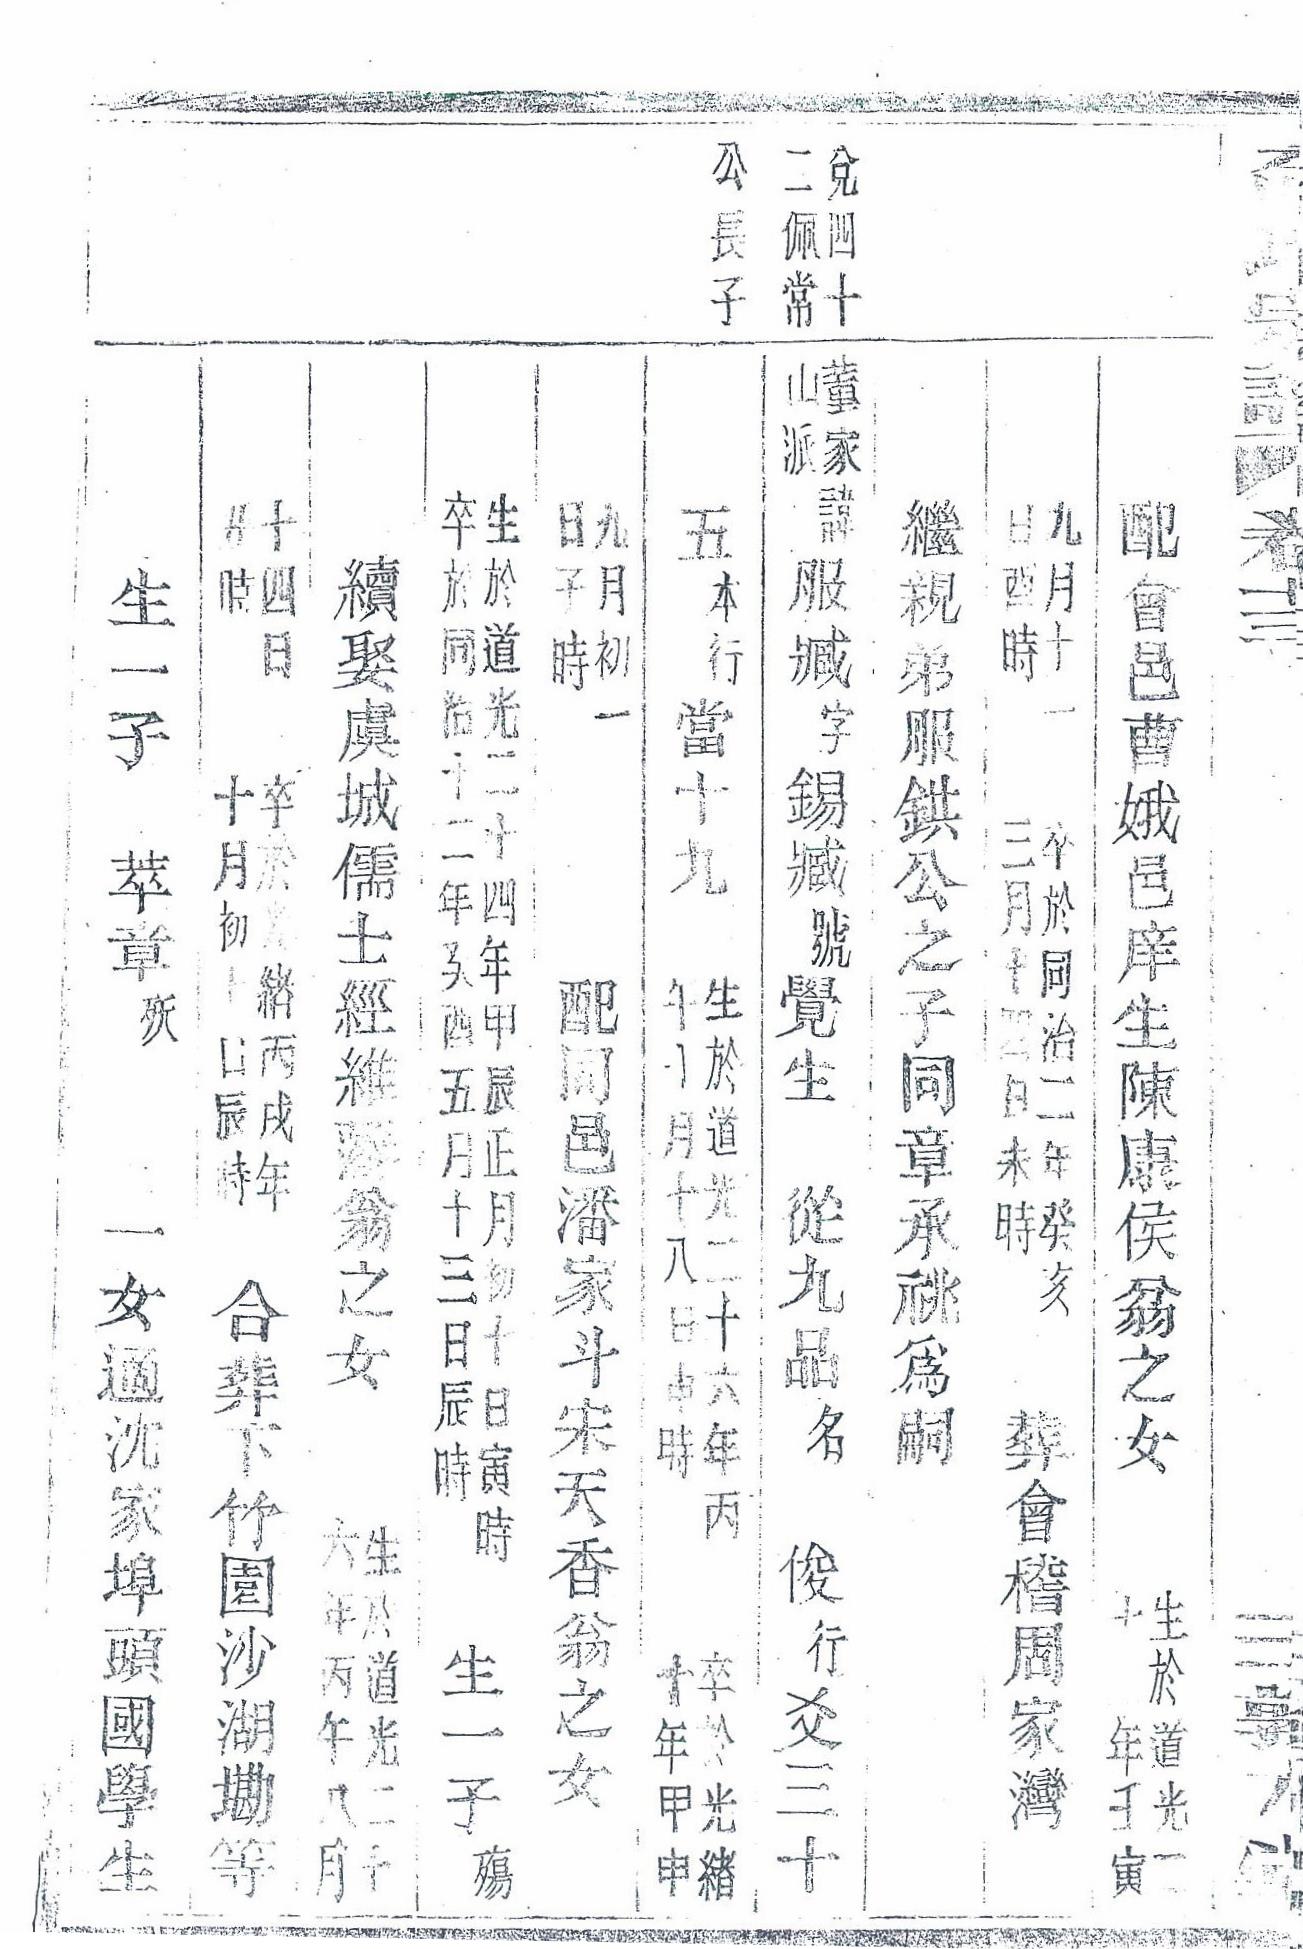 配會邑曹娥邑庠生陳康侯翁之女 生於道光二十 年壬寅
九月十一日酉時 卒於同治二年癸亥三月十四日未時 葬會稽周家灣
繼親弟服鉷公之子同章承祧爲嗣
兌四十二佩常公長子
董家山派 諱服臧字錫臧號覺生 從九品名 俊行爻三十
五本行當十九 生於道光二十六年丙午 月十八日申時 卒於光緒十年甲申
九月初一日子時 配同邑潘家斗宋天香翁之女
生於道光二十四年甲辰正月初十日寅時卒於同治十二年癸酉五月十三日辰時 生一子殤
續娶虞城儒士經維 翁之女 生於道光二十六年丙午八月
十四日 時 卒於光緒丙戌年十月初十日辰時 合葬下竹園沙湖墈等
生一子 萃章殀 一女適沈家埠頭國學生